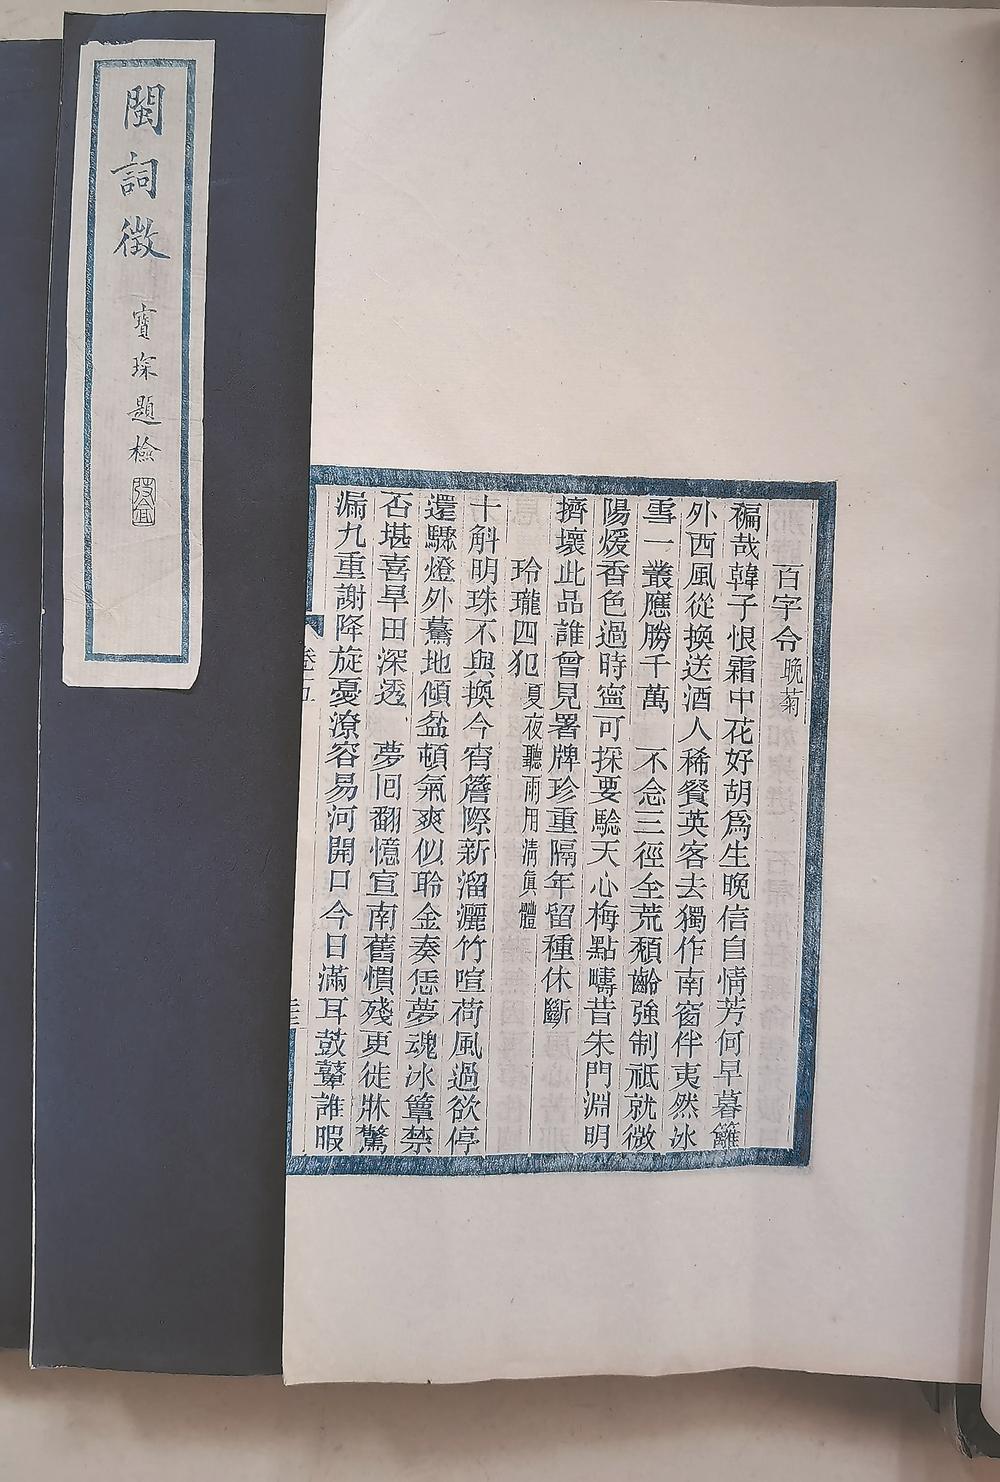 百字令晚菊
褊哉韓子恨霜中花好胡爲生晚信自情芳何早暮籬
外西風從換送酒人稀餐英客去獨作南窗伴夷然冰
雪一叢應勝千萬　不念三徑全荒頽齡強制祇就微
陽煖香色過時寧可採要驗天心梅點疇昔朱門淵明
擠壞此品誰曾見署牌珍重隔年留種休斷
玲瓏四犯夏夜聽雨用淸眞體
十斛明珠不與換今宵簷際新溜灑竹喧荷風過欲停
還驟燈外驀地傾盆頓氣爽似聆金奏恁夢魂冰簟禁
否堪喜旱田深透　夢回翻憶宣南舊慣殘更徙牀驚
漏九重謝降旋憂潦容易河開口今日滿耳鼓鼙誰暇
卷五
閩詞徵
寶琛題檢